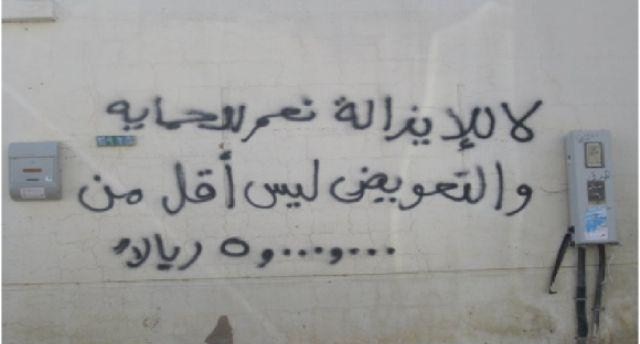 لا للإيزالة نعم للحمايه
والتعويض ليس أقل من
٥٫٠٠٠٫٠٠٠ ريالاً